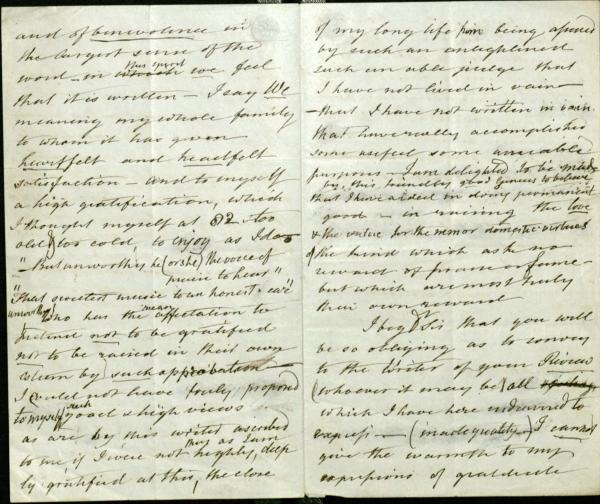 and of benevolence in
the largest sense of the
word — in which we feel
this spirit
that it is written — I say We
meaning my whole family
to whom it has given
heartfelt and headfelt
satisfaction — and to myself
a high gratification, which
I thought myself at 82 too
old & too cold, to enjoy as I do
"But unworthy he (or she) the voice of
praise to hear"
"That sweetest music to an honest ear"
unworthy who has the affectation to
mean
pretend not to be gratified
not to be raised in their own
esteem by such approbation
I could not have truly proposed
to myself such good & high views
as are by this writer ascribed
to me if I were not highly, deep
may as I am
ly gratified at this, the close
of my long life from being assured
by such an enlightened
such an able judge that
I have not lived in vain —
— that I have not written in vain
that I have really accomplished
some useful some amiable
purpose — I am delighted to be made
by this kindly good Genius to believe
that I have aided in doing permanent
good — in raising the love
& the value for the minor domestic virtues
of the kind which ask no
reward of praise or fame —
but which are most truly
their own reward
I beg Sir that you will
be so obliging as to convey
to the writer of your Review
(whoever it may be) all
which I have here endeavored to
express — (inadequately) I cannot
give the warmth to my
expressions of gratitude